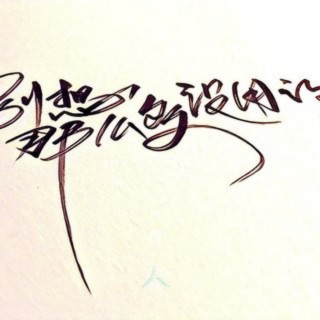 别想那么多没用